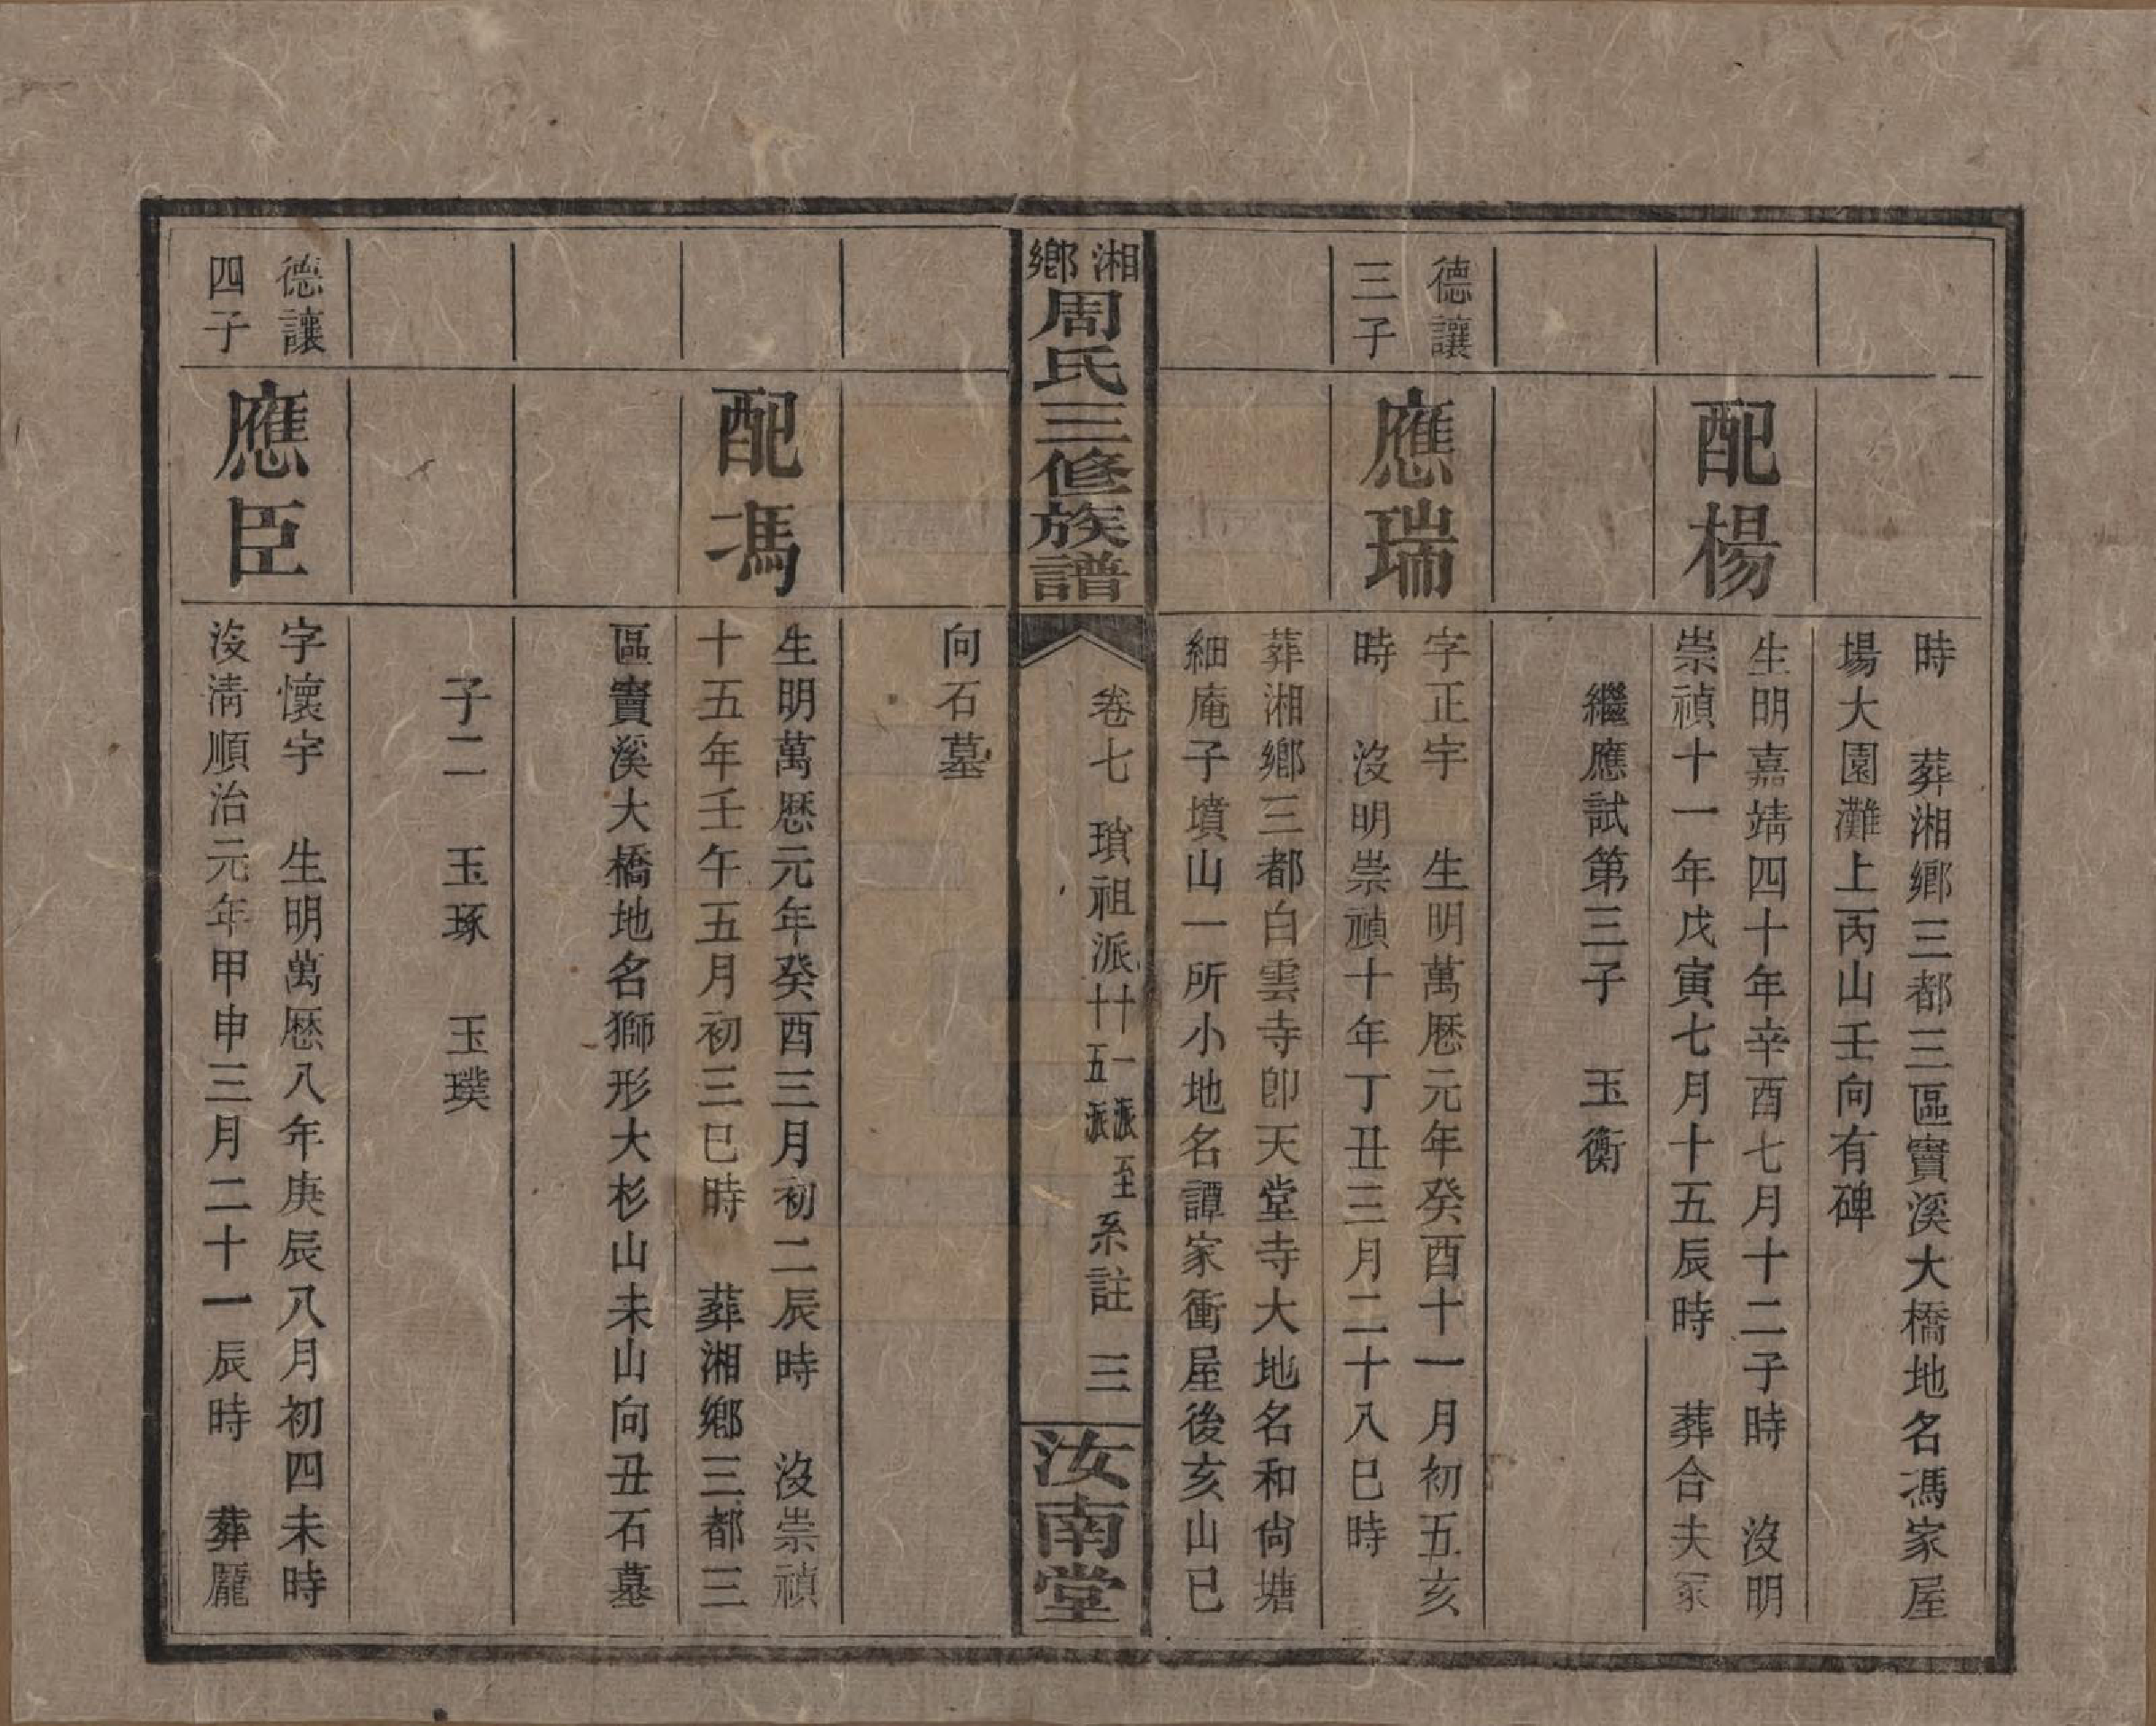 時　葬湘鄉三都三區竇溪大橋地名馮家屋
場大園灘上丙山壬向有碑
配楊
生明嘉靖四十年辛酉七月十二子時　沒明
崇禎十一年戊寅七月十五辰時　葬合夫冢
繼應試第三子　玉衡
德讓
三子
應瑞
字正宇　生明萬歷元年癸酉十一月初五亥
時　沒明崇禎十年丁丑三月二十八巳時
葬湘鄉三都白雲寺卽天堂寺大地名和尙塘
細庵子墳山一所小地名譚家衝屋後亥山巳
湘鄉
周氏三修族譜
卷七　瑣祖派十一派至十五派系註　三
汝南堂
向石墓
配馮
生明萬歷元年癸酉三月初二辰時　沒崇禎
十五年壬午五月初三巳時　葬湘鄉三都三
區竇溪大橋地名獅形大杉山未山向丑石墓
子二　玉琢　玉璞
德讓
四子
應臣
字懷宇　生明萬歷八年庚辰八月初四未時
沒淸順治元年甲申三月二十一辰時　葬龎